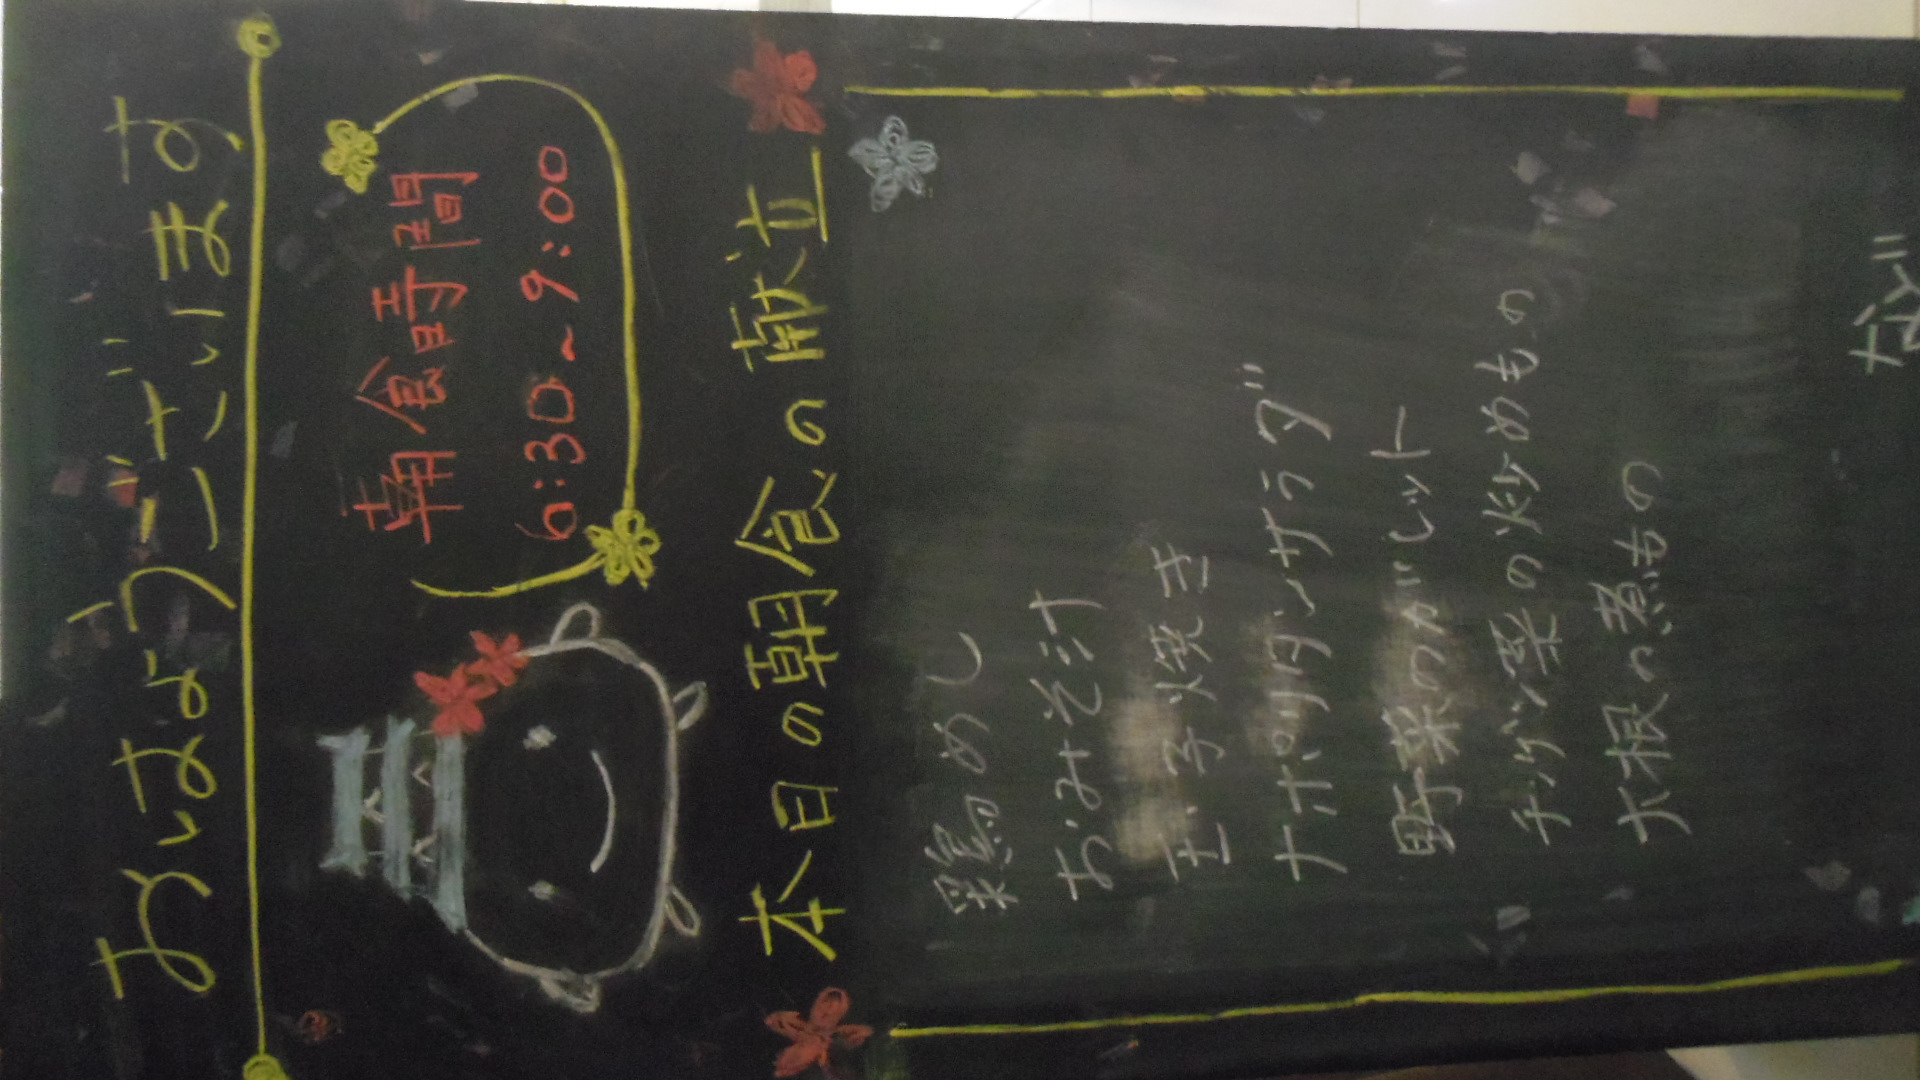 おはようございます
朝食時間
6:30~9:00
本日の朝食の献立
鶏めし
おみそ汁
玉子焼き
ナポリタンサラダ
野菜のガレット
チンゲン菜の炒めもの
大根の煮もの
など